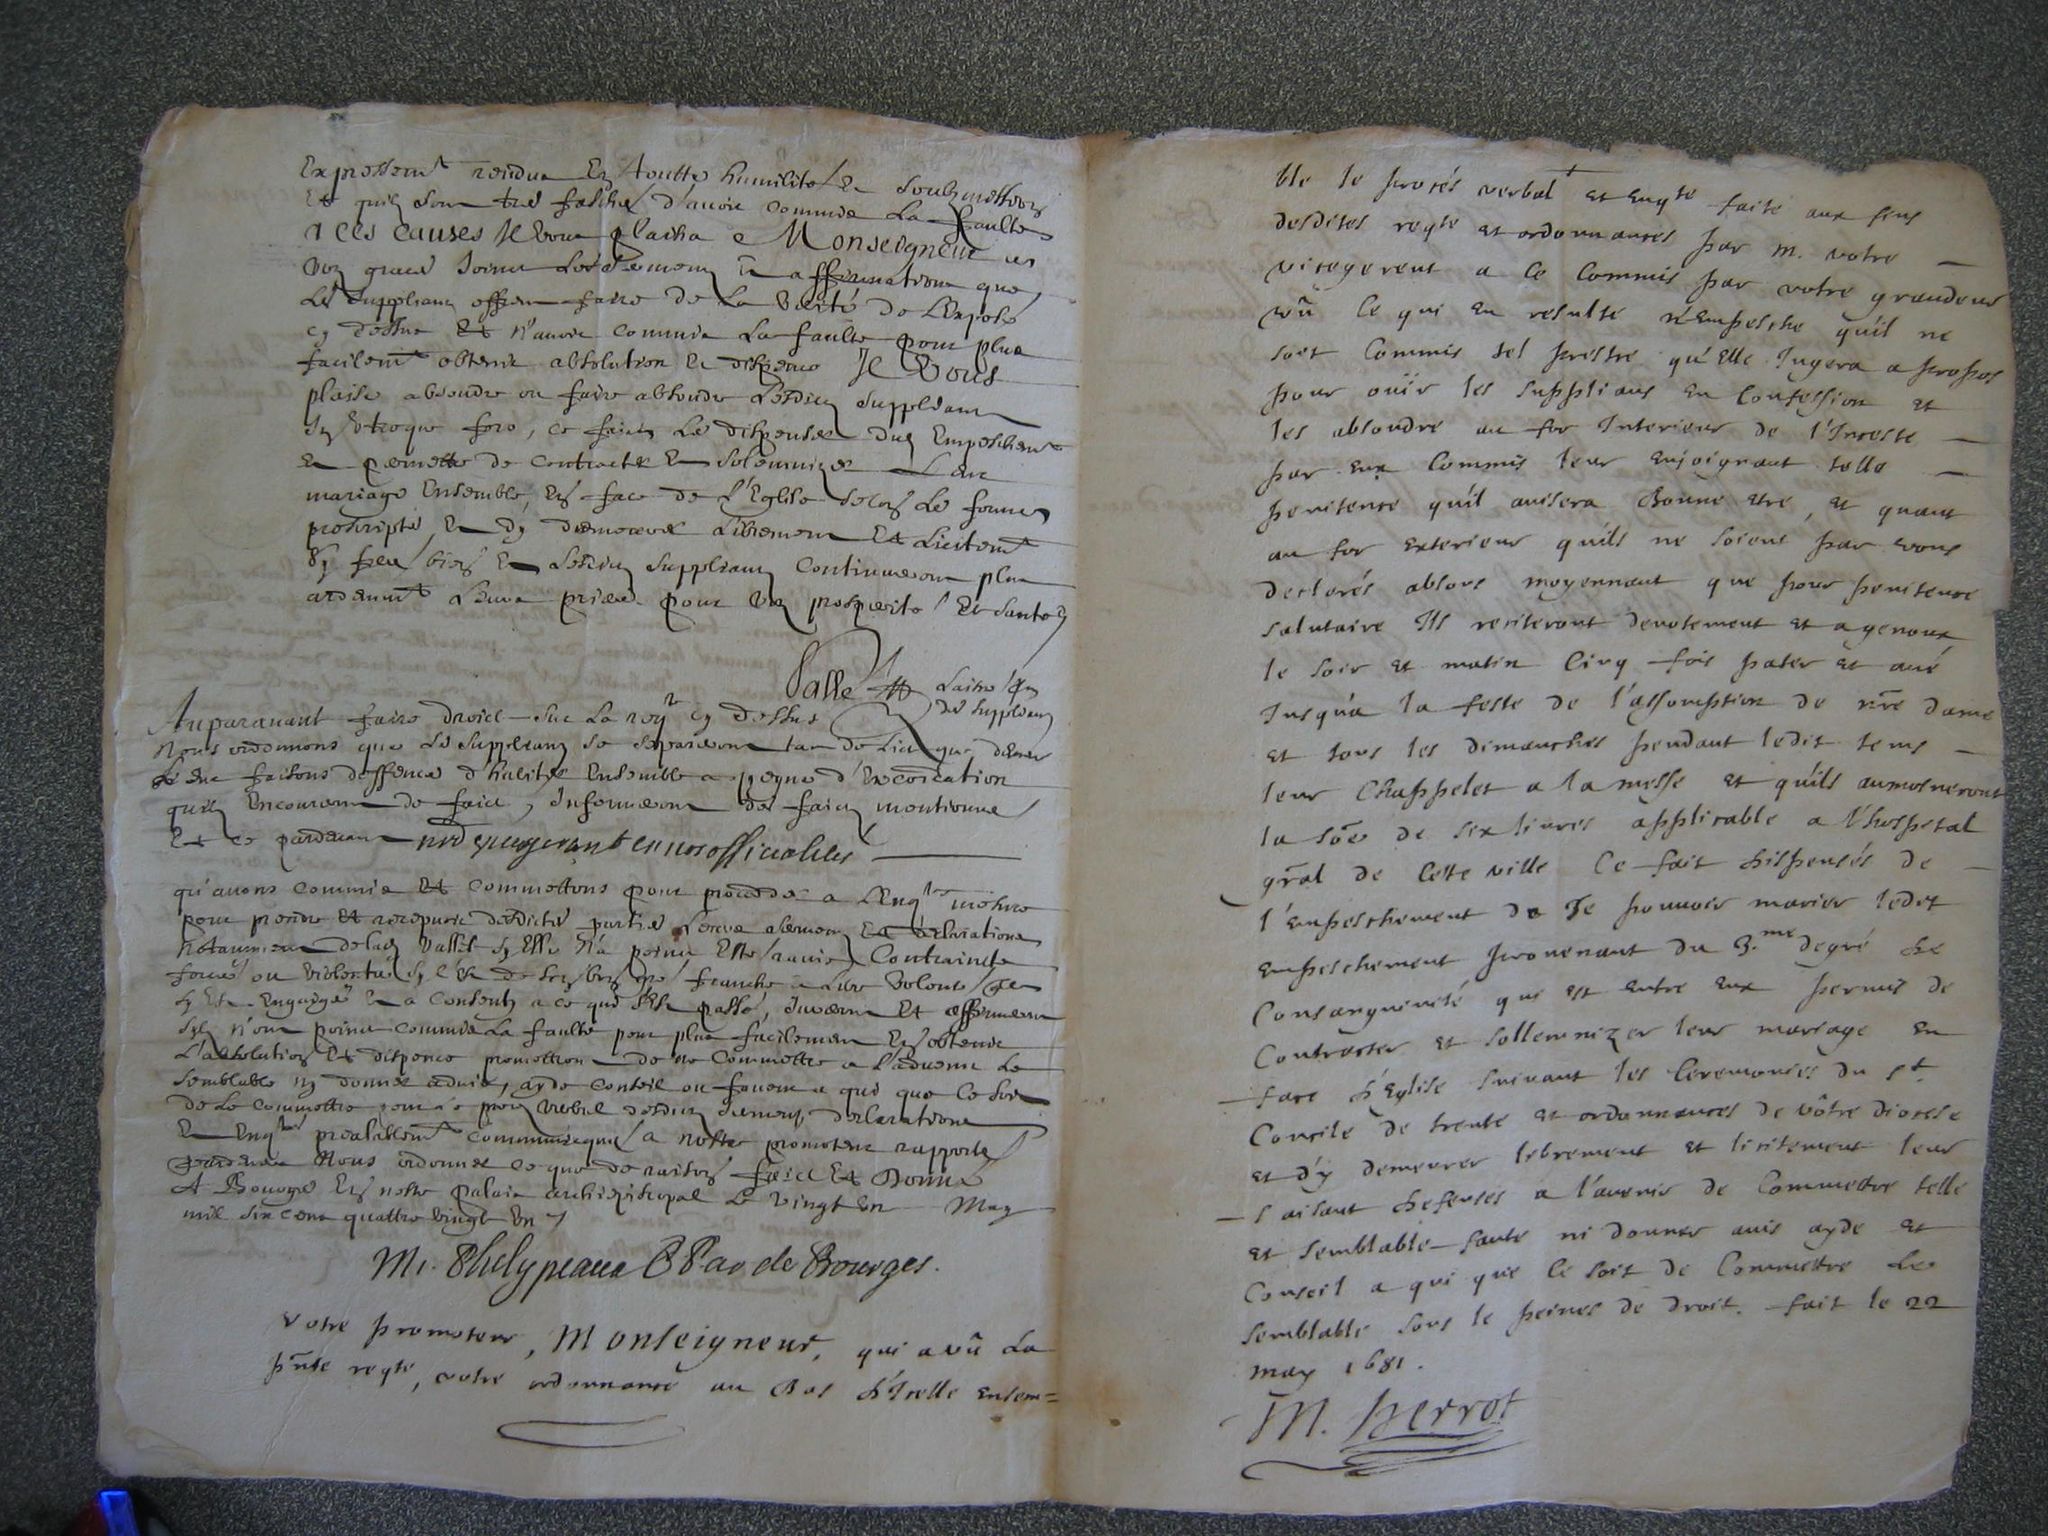 Expressemt rendue En toutte humilité Et Soubzmettons
Et quilz sont tres faschez d'auoir commis La faulte
A Ces Causes Il Vous plaira Monseigneur
Voz graces Joint Les Sermens Et affirmations que
Les Suppliants offrent faire de La Verité de L'Exposé
cy dessus Et n'auoir commis La faulte pour plus
facilemt obtenir absolution Et dispence Il Vous
plaise absoudre ou faire absoudre Lesdicts Suppliants
In Vtroque foro, Ce faict Les dispenser dud Empeschemt
Et permettre de Contracter Et Solemnizer Leur
mariage Ensemble, En face de L'Eglise Selon Les formes
prescriptes, Et dy demeurer Librement Et Licitemt
Sy ferez bien Et Lesdicts Suppliants Continueront plus
ardemmt Leurs prieres pour Vos prosperité Et Santé
Vallet
des Suppliants
Auparauant faire droict Sur La reqte cy dessus
Nous ordonnons que Les Suppliants Se Separeront tant de Lict que demeure
Leur faisons deffences d'habiter Ensemble a peyne d'Excommunication
quilz Encoureront de faict, Informeront des faicts mentionnez
Et Ce pardeuant
qu'auons commis Et Commettons pour proceder a L'Enqte
pour prendre Et recepuoir desdictes parties Leurs Sermens Et declarations
Notamment de lad Vallet Sy Elle n'a point Esté rauie Contrainte
forcée ou Violentée Sy C'est de Son bon gré franche Et Libre Volonté
Sy Est Engagée Et a Consenty a ce qui S'Est passé, Jureront Et affirmeront
Silz n'ont point commis La faulte pour plus facilement En obtenir
L'absolution Et dispence promettront de ne Commettre a l'aduenir Le
Semblable ny donner aduis, ayde conseil ou faueur a qui que Ce Soit
de Le Commettre pour Le proces Verbal desdicts Sermens, declarations
Et Enqte prealablemt Communiquez a Nostre promoteur rapporté
pardeuant Nous ordonner Ce que de raison faict Et Donné
A Bourges En nostre Palais archiepiscopal Le Vingt un May
mil Six cent quattre Vingt Un
M. Phelypeaux P. P. ar. de Bourges.
Votre promoteur, Monseigneur, qui a vû La
pñte reqte, votre ordonnance au Bas d'Icelle ensem=
ble le procés verbal et enqte faite aux fins
desdites reqte et ordonnances par m. votre
vicegerent a Ce Commis par votre grandeur
vû Ce qui en resulte n'Empesche qu'il ne
soit Commis tel prestre qu'Elle Jugera a propos
pour oüir les supplians en Confession et
les absoudre au for Interieur de l'Inceste
par eux Commis leur enjoignant telle
penitence qu'il auisera Bonne etre, et quant
au for exterieur qu'ils ne soient par vous
declarés absous moyennant que pour penitence
salutaire Ils reciteront deuotement et a genoux
le soir et matin Cinq fois pater et aué
Jusqu'a la feste de l'assomption de nre dame
et tous les dimanches pendant ledit tems
leur Chappelet a la messe et qu'ils aumosneront
la soe de six liures applicable a l'hospital
gñal de Ceste ville Ce fait dispensés de
l'empeschement de Se pouuoir marier ledit
empeschement prouenant du 3.me degré de
Consanguinité qui est entre eux permis de
Contracter et sollemnizer leur mariage en
face d'Eglise suiuant les Ceremonies du st.
Concile de trente et ordonnances de vôtre diocese
et d'y demeurer librement et licitement leur
faisant defenses a l'auenir de Commettre telle
et semblable faute ni donner auis ayde et
Conseil a qui que Ce soit de Commettre Le
semblable sous le peines de droit. fait le 22
may 1681.
M. Perrot